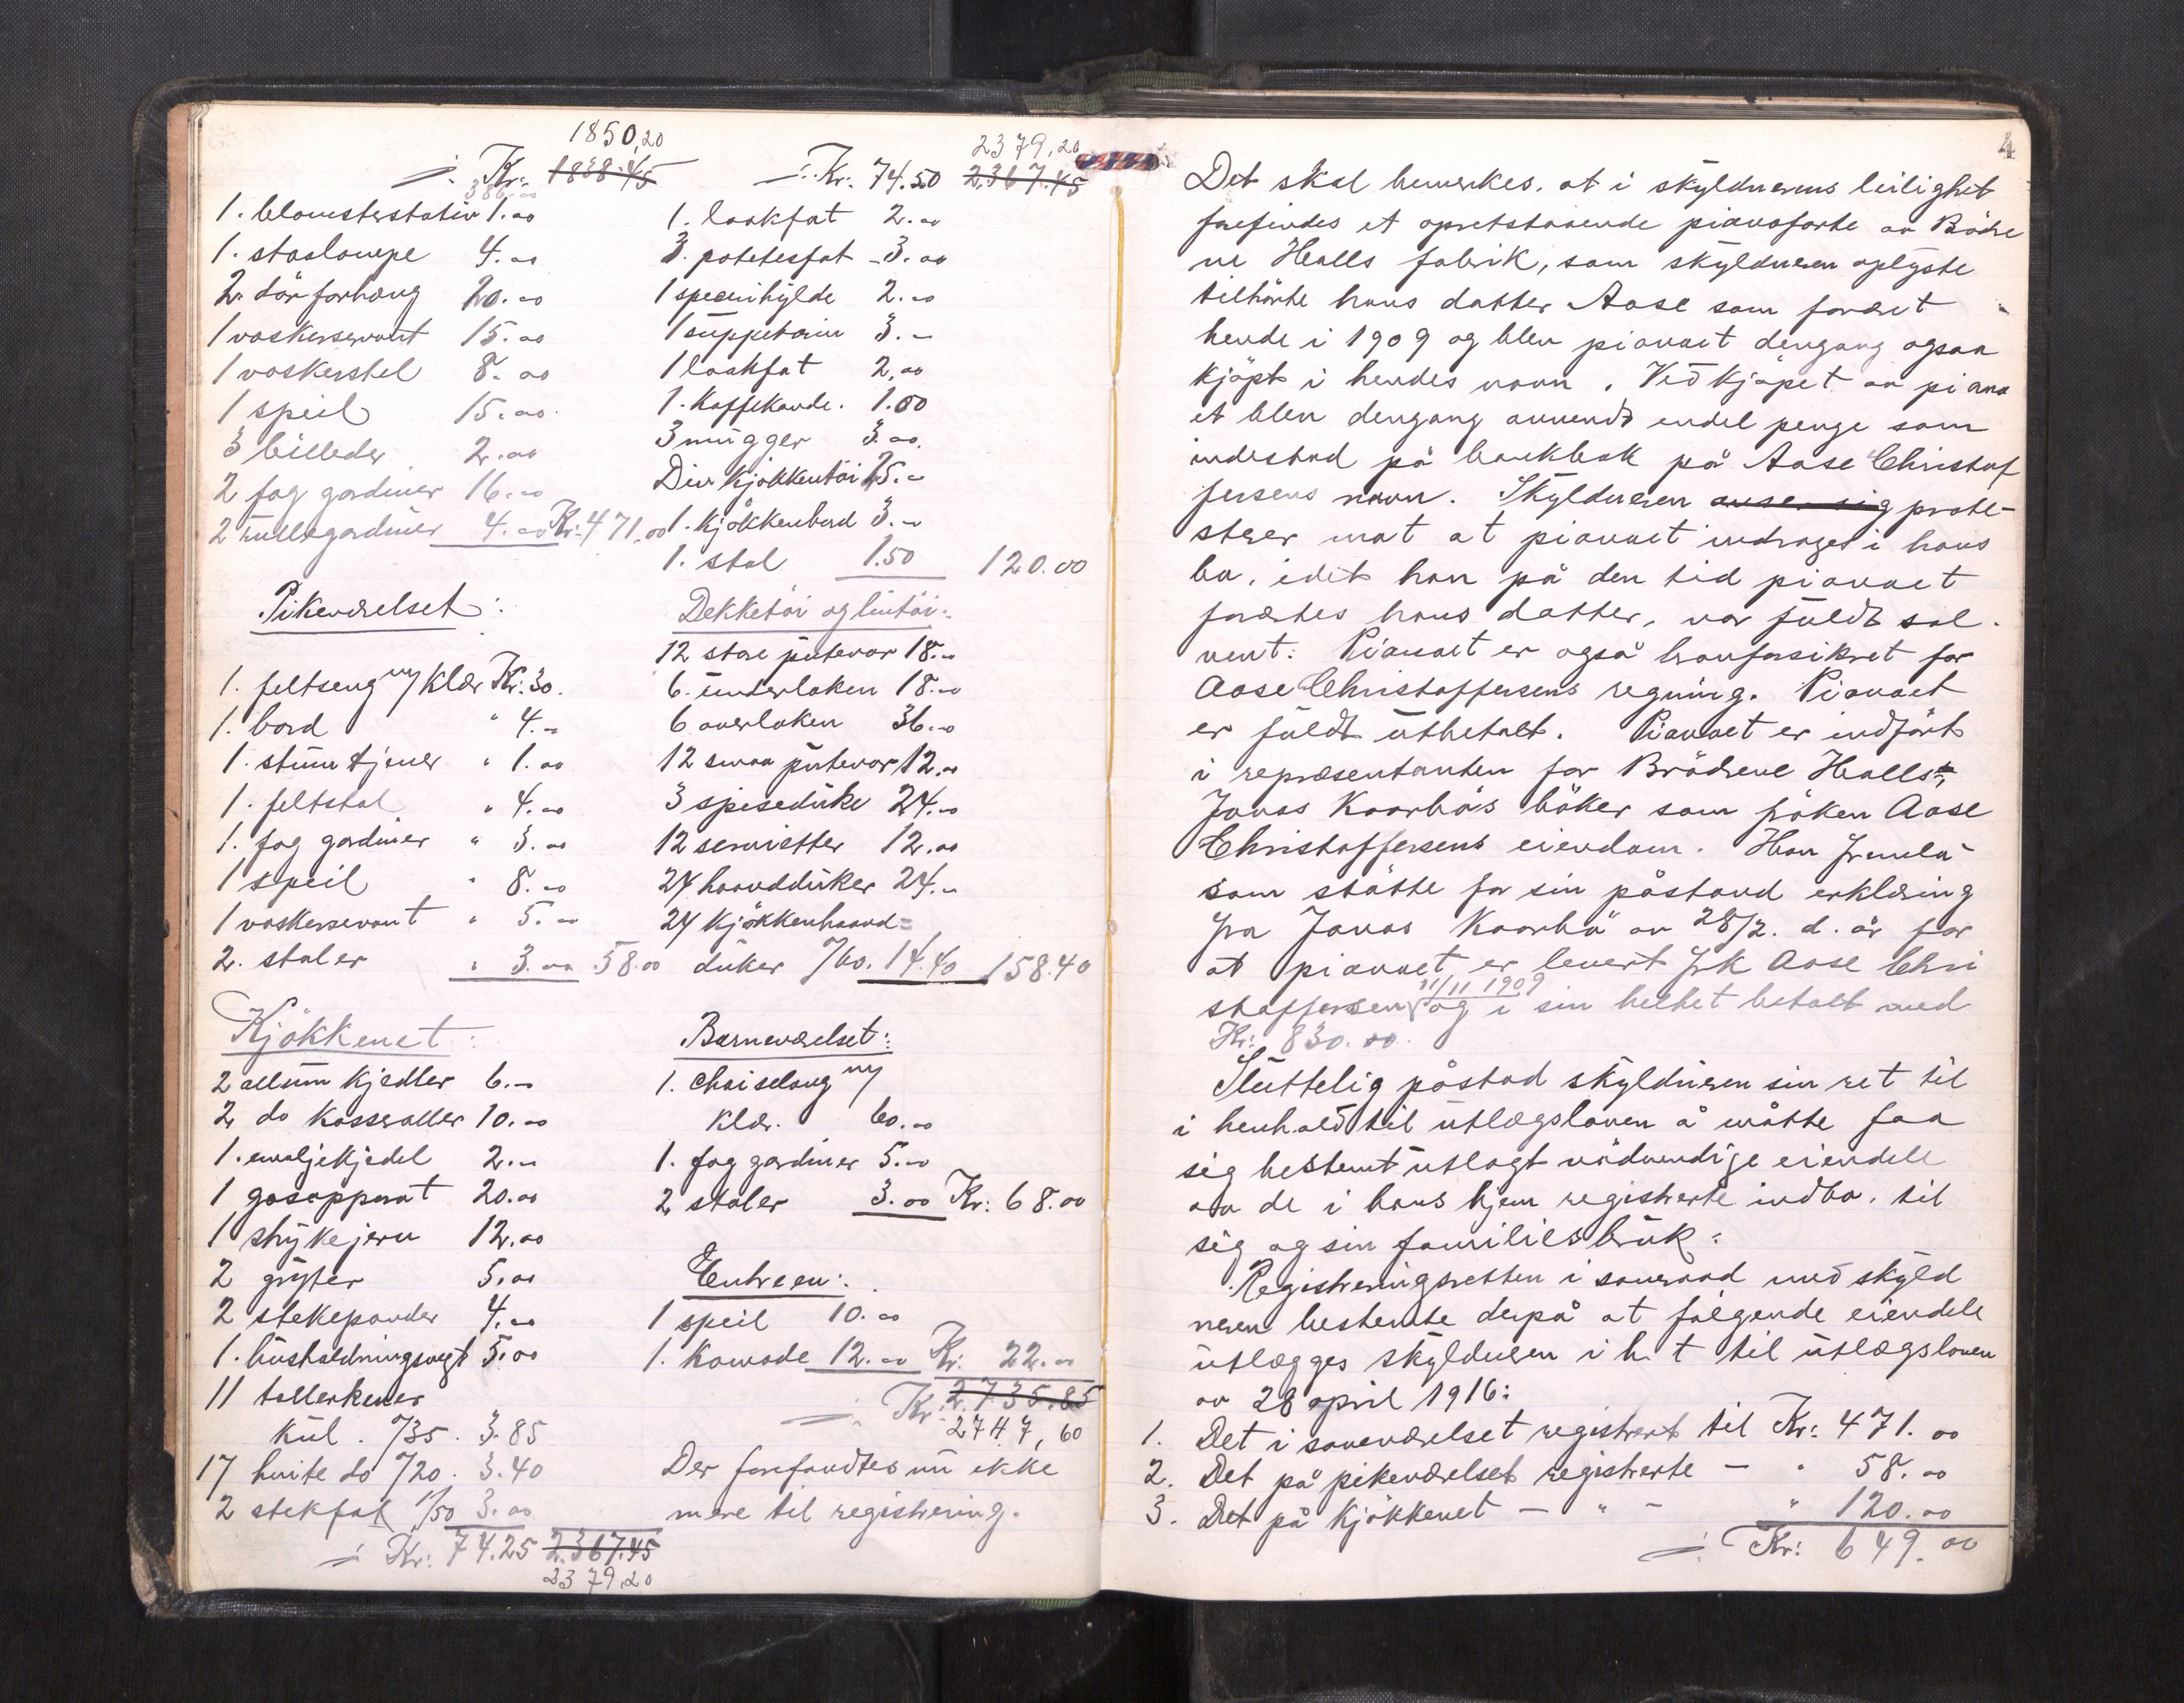 1850,20
÷ Kr: 1838.45
386.00
1. blomsterstativ 1.00
1. staalampe 4.00
2. dörforhæng 20.00
1 vaskeservant 15.00
1 vaskestel 8.00
1 speil 15.00
3 billeder 2.00
2 fag gardiner 16.00
2 rullegardiner 4.00 Kr: 471.00
Pikeværelset:
1. feltseng m/ klær Kr: 30.
1. bord " 4.-
1. stum tjener " 1.00
1. feltstol " 4.00
1. fag gardiner " 3.00
1 speil " 8.00
1 vaskeservant " 5.00
2. stoler " 3.00 58.00
Kjökkenet:
2 allum kjedler 6.-
2 do kasseroller 10.00
1. emaljekjedel 2.-
1 gasapparat 20.00
1 strykejern 12.00
2 gryter 5.00
2 stekepander 4.00
1. husholdningsvegt 5.00
11 tallerkener
kul. /35. 3.85
17 hvite do /20. 3.40
2 stekfat 1/50 3.00
÷ Kr: 74.25 2.367.45
2379,20
2379,20
÷ Kr: 74.50 2.367.45
1. laakfat 2.00
3. potetesfat - 3.00
1 specerihylde 2.00
1 suppeterin 3.-
1 laakfat 2,00
1. Kaffekande. 1.00
3 mugger 3.00
Div kjökkentöi 25.-
1. kjökkenbord 3.-
1. stol 1.50 120.00
Dekketöi og lintöi:
12 store putevar 18.-
6. underlaken 18.-
6 overlaken 36.-
12 smaa putevar 12.00
3 spiseduke 24.-
12 servietter 12.00
24 haandduker 24.-
24 kjökkenhaand=
duker /60. 14.40 158.40
Barneværelset:
1. chaiselong m/
klær. 60.00
1. fag gardiner 5.-
2 stoler 3.00 Kr: 68.00
Entreen:
1 speil 10.00
1. Komode 12.00 Kr: 22.00
÷ Kr: 2.735.85
2747,60
Der forefandtes nu ikke
mere til registrering.
4
Det skal bemerkes. at i skyldnerens leilighet
forefindes et opretstaaende pianoforte av Bödre
ne Halls fabrik, som skyldneren oplyste
tilhörte hans datter Aase som foræret
hende i 1909 og blev pianoet dengang ogsaa
kjöpt i hendes navn. Ved kjöpet av piano
et blev dengang anvendt endel penge som
indestod på bankbok på Aase Christof
fersens navn. Skyldneren anser sig prote-
sterer mot at pianoet inddrages i hans
bo, idet han på den tid pianoet
forærtes hans datter, var fuldt sol-
vent. Pianoet er også branforsikret for
Aase Christoffersens regning. Pianoet
er fuldt utbetalt. Pianoet er indfört
i representanten for Brödrene Halls:
Jonas Kaarbös böker som fröken Aase
Christoffersens eiendom. Han fremla
som stötte for sin påstand erklæring
fra Jonas Kaarbö av 28/2. d. år for
at pianoet er levert frk Aase Chri
11/11 1909
stoffersen og i sin helhet betalt med
Kr: 830.00.
Sluttelig påstod skyldneren sin ret til
i henhold til utlægsloven å måtte faa
sig bestemt utlagt nödvendige eiendele
av de i hans hjem registrerte indbo, til
sig og sin families bruk:
Registreringsretten i samraad med skyld
neren bestemte derpå at fölgende eiendele
utlægges skyldneren i h. t til utlægsloven
av 28 april 1916:
1. Det i soveværelset registrert til Kr: 471.00
2. Det på pikeværelset registrerte - " 58.00
3. Det på Kjökkenet - " - " 120.00
÷ Kr: 649.00